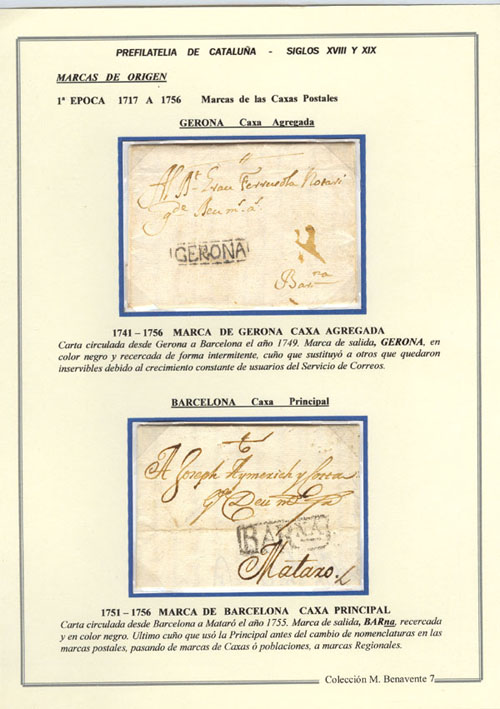 PREFILATELIA DE CATALUÑA - SIGLOS XVIII Y XIX
MARCAS DE ORIGEN
1ª EPOCA 1717 A 1756 Marcas de las Caxas Postales
GERONA Caxa Agregada
Ferrusola
gde
GERONA
Barna
1741 – 1756 MARCA DE GERONA CAXA AGREGADA
Carta circulada desde Gerona a Barcelona el año 1749. Marca de salida, GERONA, en
color negro y recercada de forma intermitente, cuño que sustituyó a otros que quedaron
inservibles debido al crecimiento constante de usuarios del Servicio de Correos.
BARCELONA Caxa Principal
A Joseph Aymerich y
BARNA
Mataro.
1751 – 1756 MARCA DE BARCELONA CAXA PRINCIPAL
Carta circulada desde Barcelona a Mataró el año 1755. Marca de salida, BARna, recercada
y en color negro. Ultimo cuño que usó la Principal antes del cambio de nomenclaturas en las
marcas postales, pasando de marcas de Caxas ó poblaciones, a marcas Regionales.
Colección M. Benavente 7